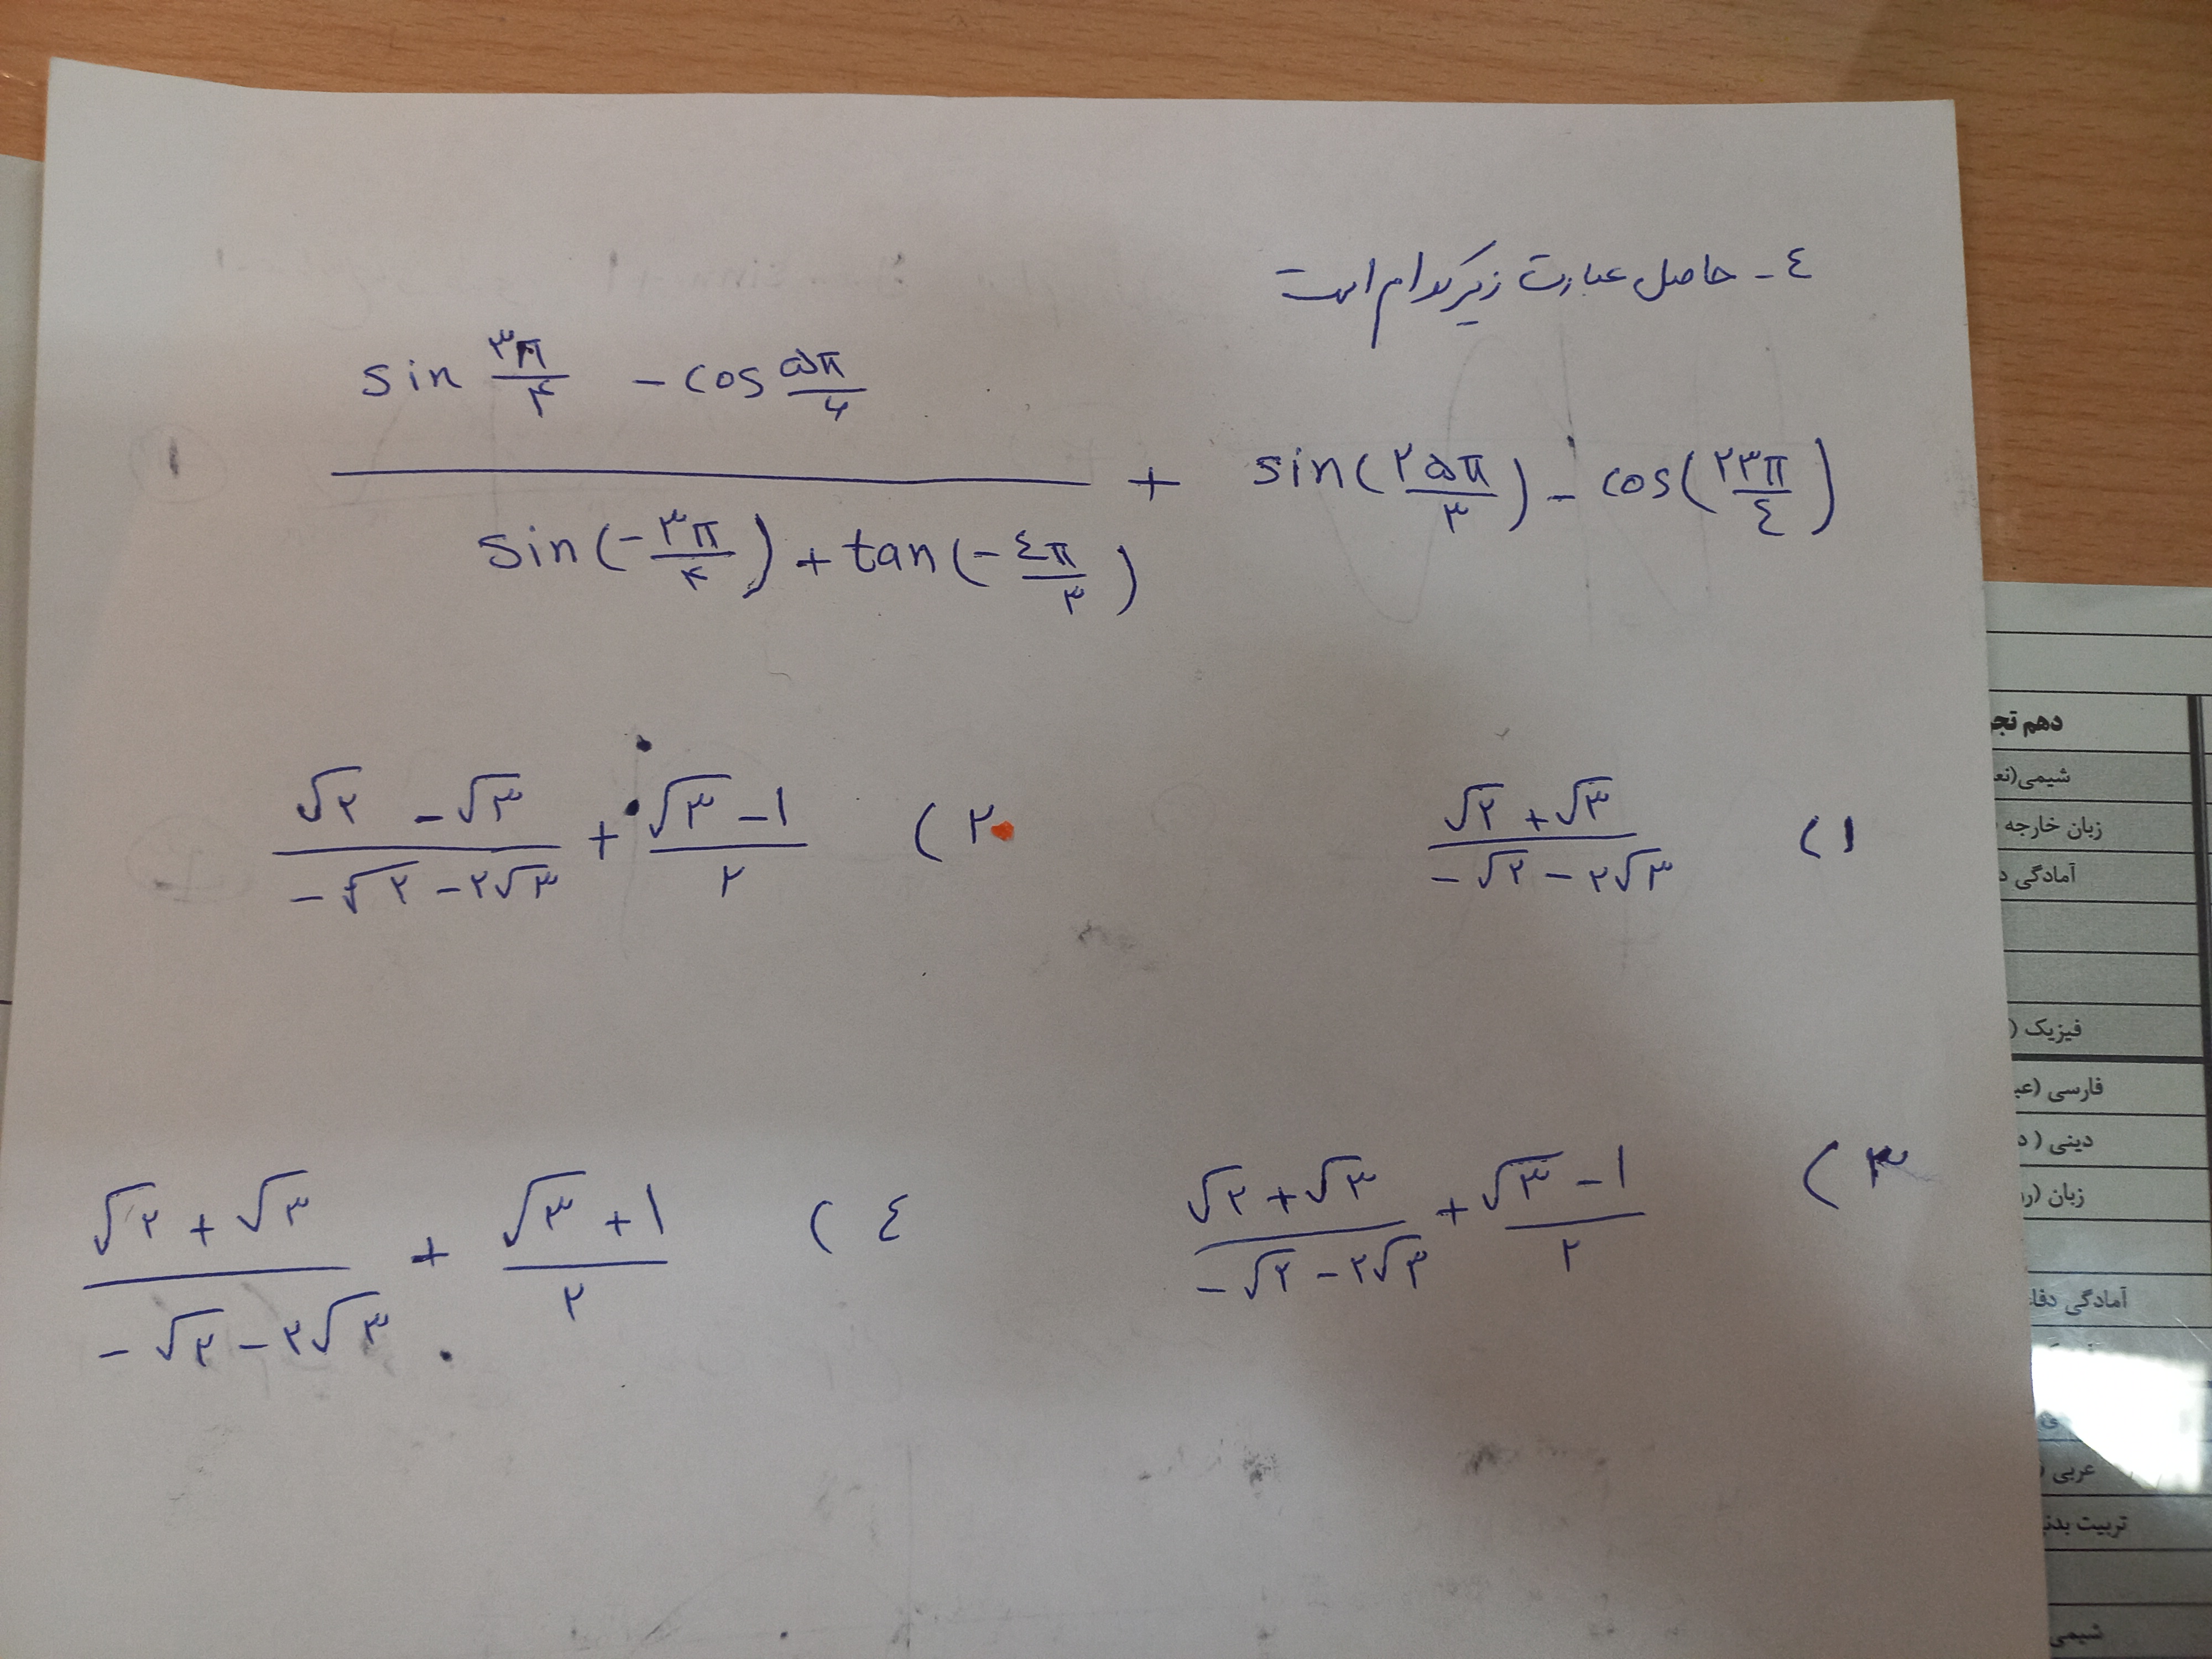 ٤- حاصل عبارت زیر کدام است
sin ۳π/۴ - cos ۵π/۶
sin(-۳π/۴) + tan(-٤π/۳)
+ sin(۲۵π/۳) - cos(۲۳π/٤)
۱) √۲ + √۳ / -√۲ - ۲√۳
۲) √۲ - √۳ / -√۲ - ۲√۳ + √۳ - ۱ / ۲
۳) √۲ + √۳ / -√۲ - ۲√۳ + √۳ - ۱ / ۲
٤) √۲ + √۳ / -√۲ - ۲√۳ + √۳ + ۱ / ۲
دهم تجر
شیمی(نع
زبان خارجه
آمادگی د
فیزیک (
فارسی (عب
دینی ( د
زبان (رو
آمادگی دفا
عربی (
تربیت بدن
شیمی